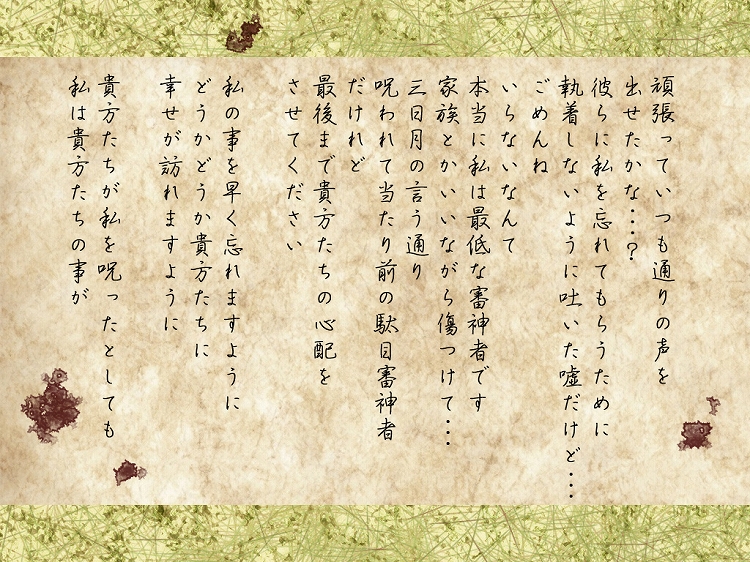 頑張っていつも通りの声を
出せたかな・・・?
彼らに私を忘れてもらうために
執着しないように吐いた嘘だけど・・・・
ごめんね
いらないなんて
本当に私は最低な審神者です
家族とかいいながら傷つけて・・・
三日月の言う通り
呪われて当たり前の駄目審神者
だけれど
最後まで貴方たちの心配を
させてください
私の事を早く忘れますように
どうかどうか貴方たちに
幸せが訪れますように
貴方たちが私を呪ったとしても
私は貴方たちの事が